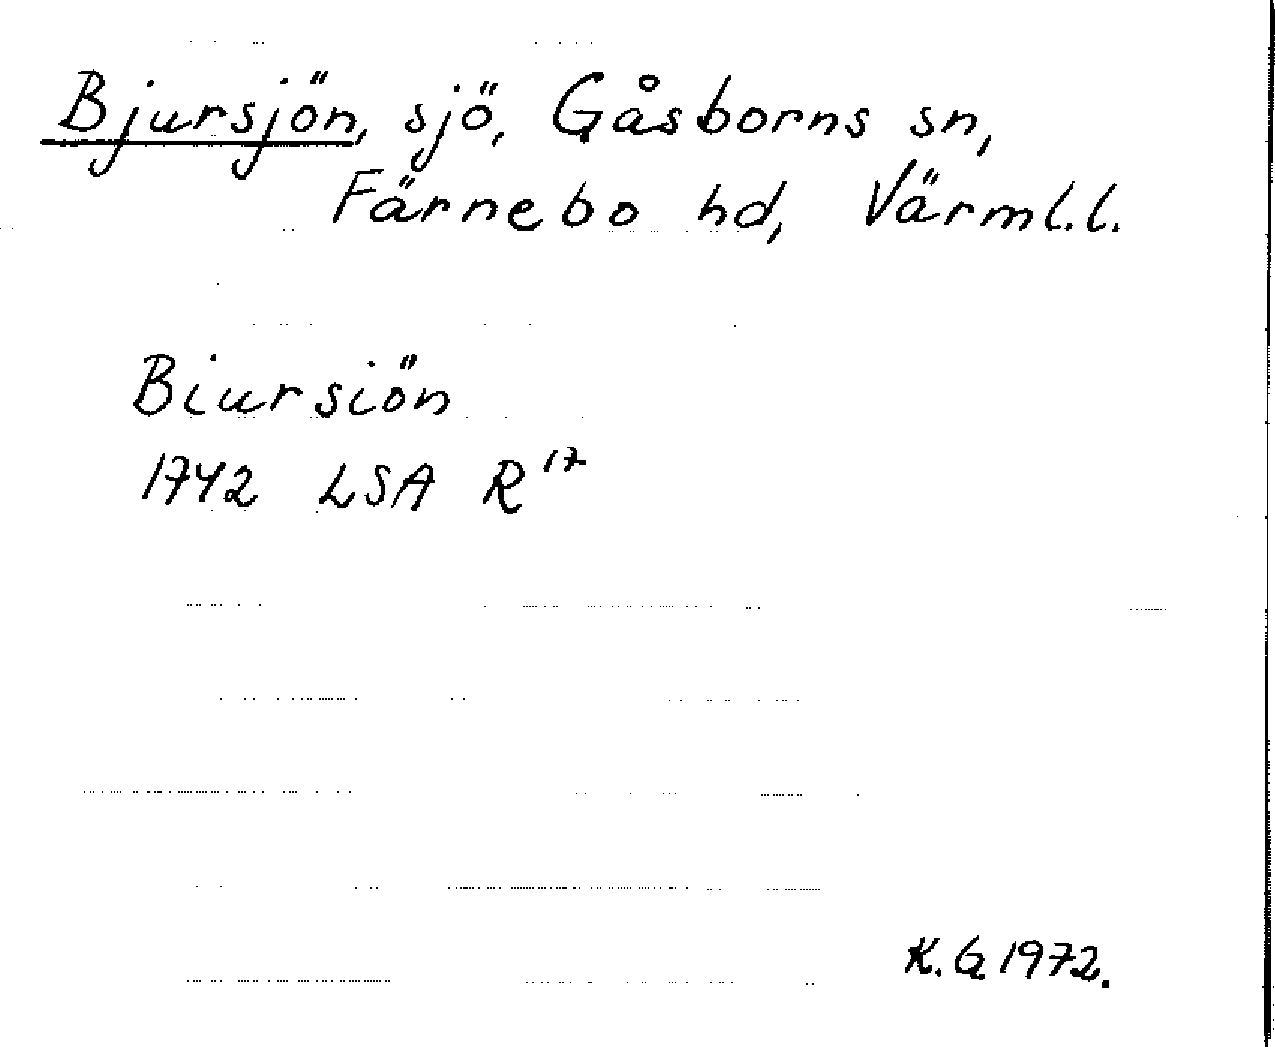 Bjursjön, sjö, Gåsborns sn,
Färnebo hd, Värml.l.
Biursiön
1742 LSA R¹⁷
K.G 1972.